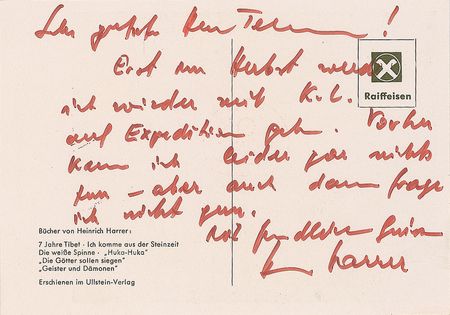 Sehr geehrter Herr
Erst im Herbst werde
ich wieder mit K.L.
auf Expedition gehn. Vorher
kann ich leider gar nichts
tun – aber auch dann frage
ich nicht gern.
Mit freundlichem Gruß
H. Harrer
Raiffeisen
Bücher von Heinrich Harrer:
7 Jahre Tibet · Ich komme aus der Steinzeit
Die weiße Spinne · „Huka-Huka"
„Die Götter sollen siegen"
„Geister und Dämonen"
Erschienen im Ullstein-Verlag